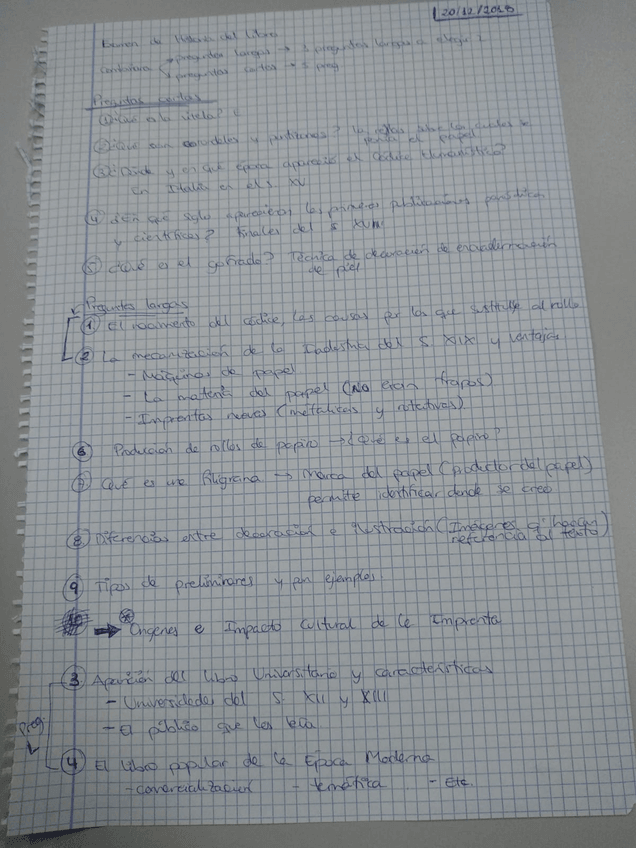 20/12/2018
Examen de Historia del Libro
preguntas largas → 3 preguntas largas a elegir 2
preguntas cortas → 5 preg
Preguntas cortas
① ¿Qué es la vitela?
② ¿Qué son corondeles y puntizones? las rejillas sobre las cuales se
el papel
③ ¿Dónde y en qué época apareció el Códice Humanístico?
En Italia en el s. XV
④ ¿En qué siglo aparecieron las primeras publicaciones periódicas
y científicas? Finales del s. XVII
⑤ ¿Qué es el gofrado? Técnica de decoración de encuadernación
de piel
Preguntas largas
① El nacimiento del códice, las causas por las que sustituye al rollo
② La mecanización de la Industria del S. XIX y ventajas.
- Máquinas de papel
- La materia del papel (NO eran trapos)
- Imprentas nuevas (metálicas y rotativas).
⑥ Producción de rollos de papiro → ¿Qué es el papiro?
⑦ Qué es una filigrana → Marca del papel (productor del papel)
permite identificar donde se creó
⑧ Diferencias entre decoración e ilustración (Imágenes q' hacen
referencia al texto)
⑨ Tipos de preliminares y pon ejemplos.
→ Orígenes e Impacto Cultural de la Imprenta
③ Aparición del Libro Universitario y características
- Universidades del S. XII y XIII
- El público que los leía.
Preg
④ El Libro popular de la Época Moderna
- comercialización - temática - Etc.